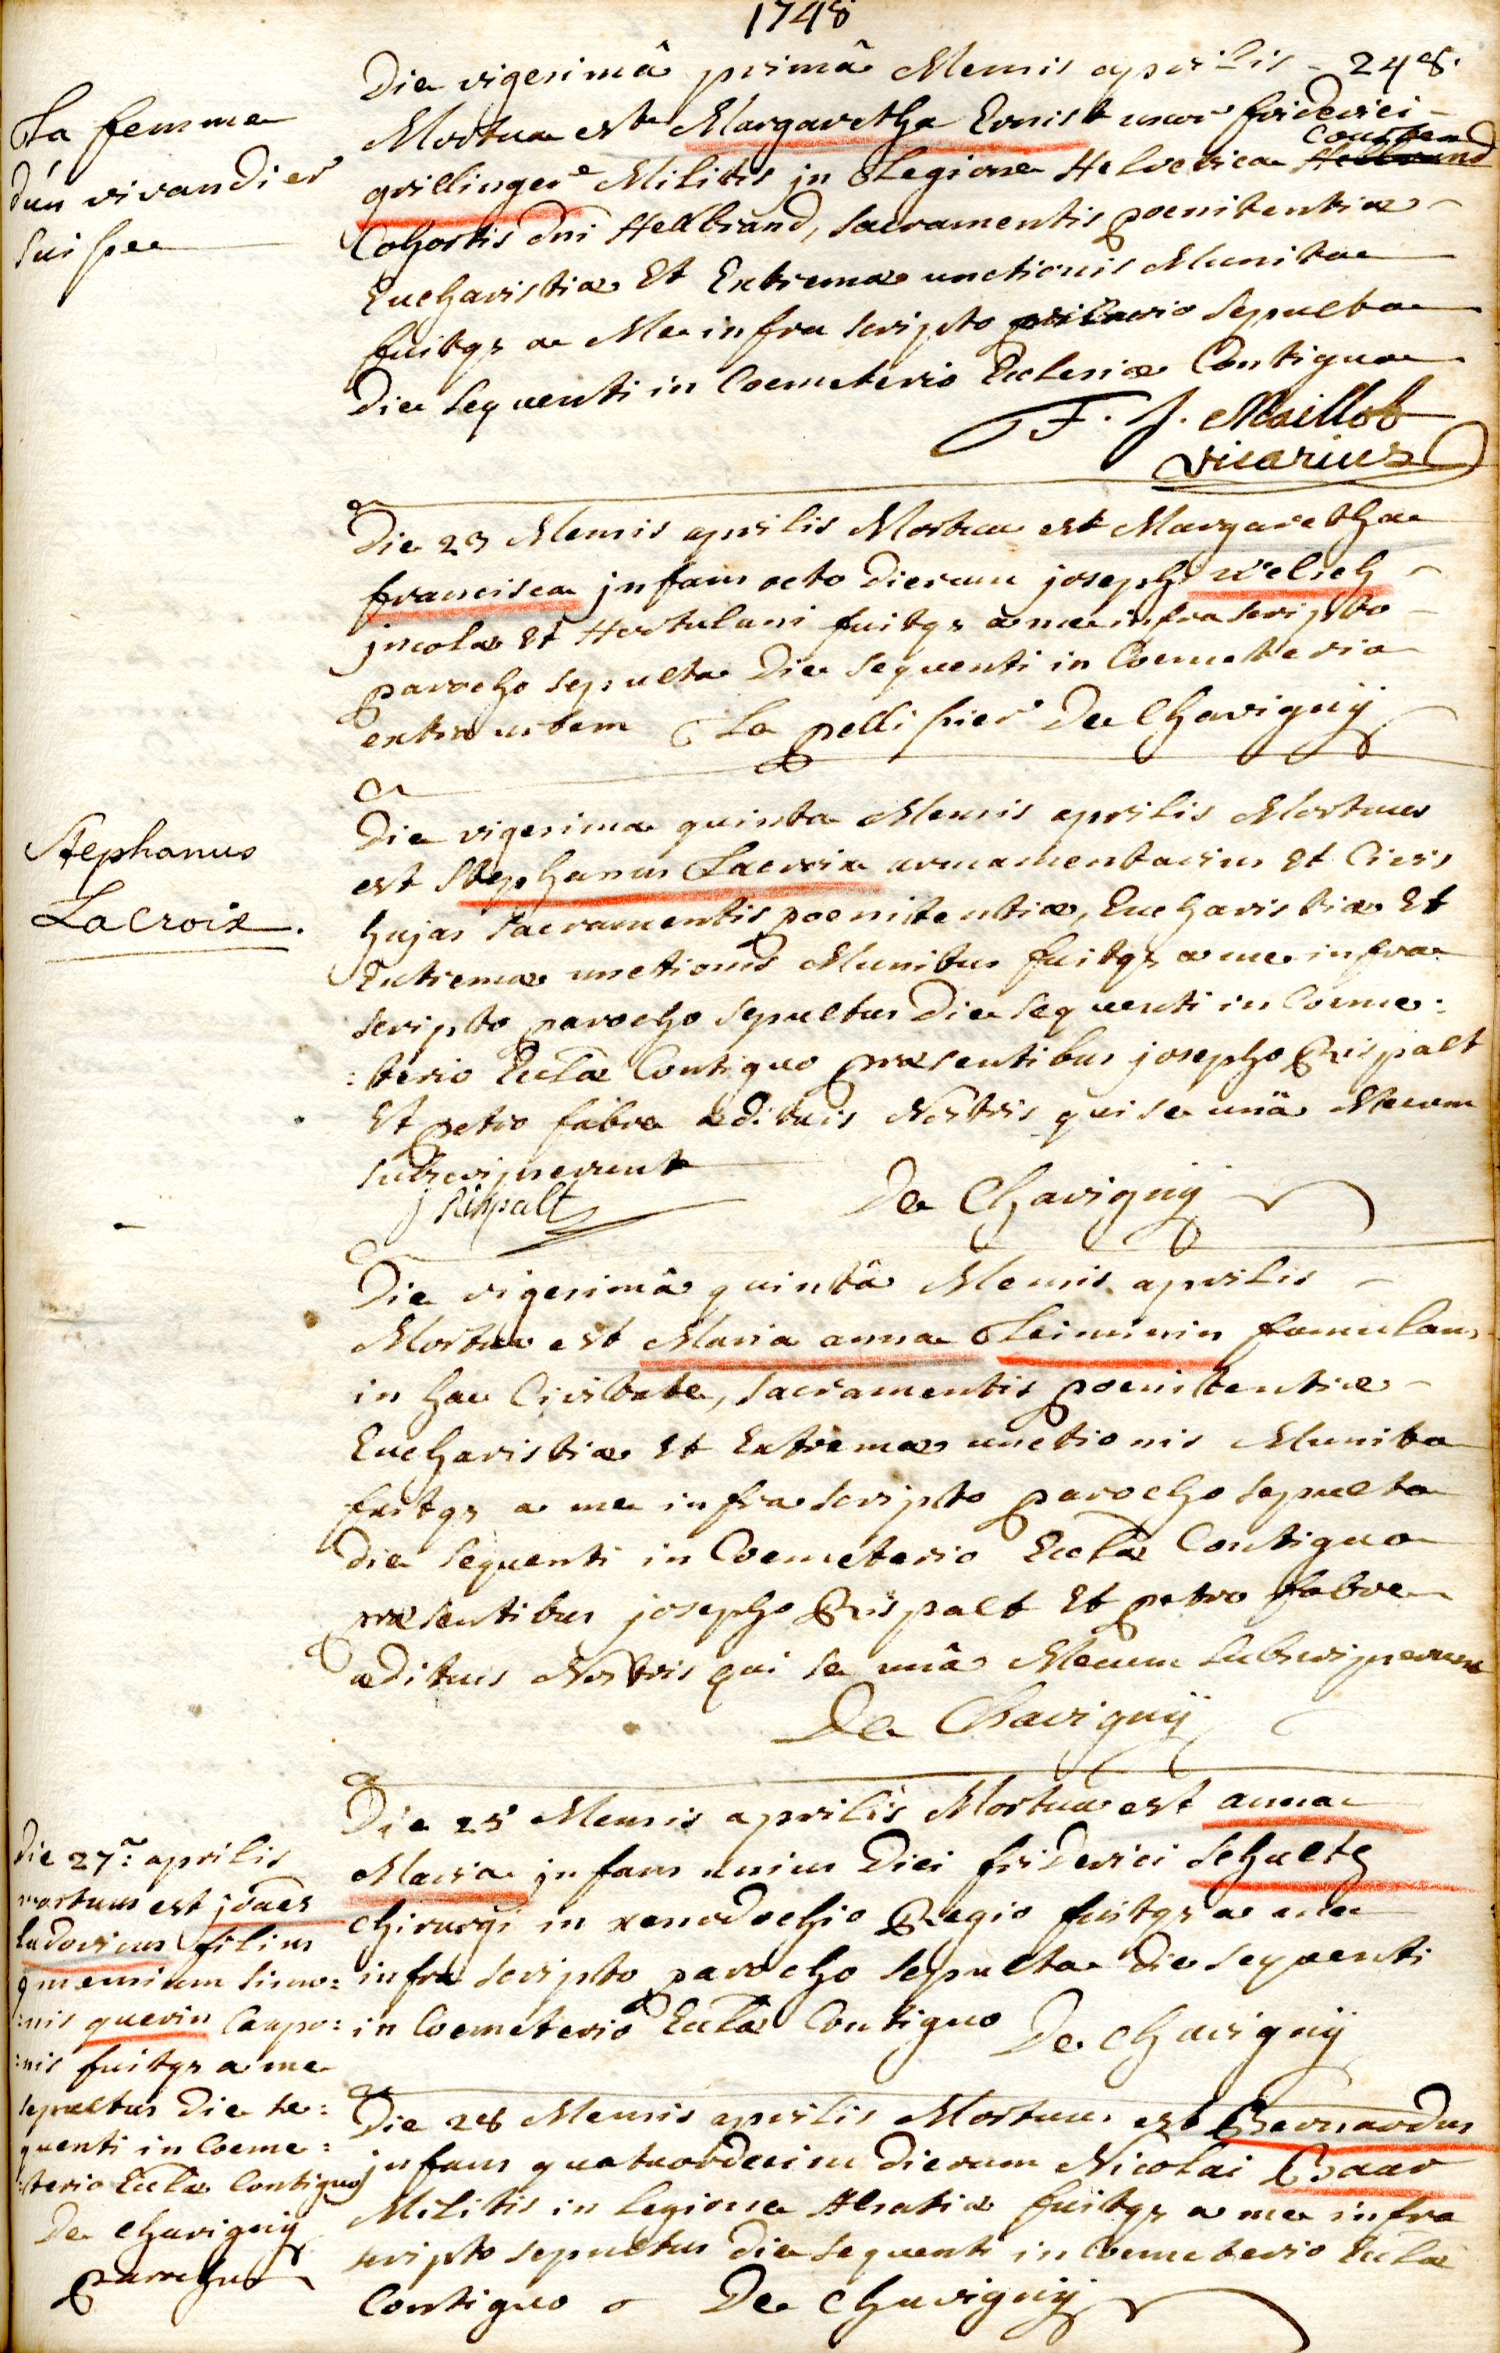 1748
248.
La femme
d'un vivandier
suisse
Die vigesimâ primâ Mensis aprilis
Mortua est Margaretha Ernist uxor friderici
grillinger Militis in Legione Helvetica
Cohortis Dni Hellbrand, sacramentis poenitentiæ
Eucharistiæ Et Extremæ unctionis Munita
fuitqz a Me infra scripto vicario sepulta
Die sequenti in Coemeterio Ecclesiæ Contiguo
F. J. Maillot
vicarius
Die 23 Mensis aprilis Mortua est Margaretha
francisca infans octo Dierum josephi welsch
jncolæ Et Hortulani fuitqz a me infra scripto
parocho sepulta Die sequenti in Coemeterio
extra urbem La pellissier De Chavignÿ
Stephanus
LaCroix.
Die vigesima quinta Mensis aprilis Mortuus
est Stephanus Lacroix armamentarius Et Civis
hujas sacramentis poenitentiæ, Eucharistiæ Et
Extremæ unctionis Munitus fuitqz a me infra
scripto parocho sepultus Die sequenti in Coeme:
:terio Ecclæ Contiguo præsentibus josepho Rispalt
Et petro fabre ædituis Nostris qui se unâ Mecum
subscripserunt
J Rispalt
De Chavignÿ
Die vigesimâ quintâ Mensis aprilis
Mortua est Maria anna Leiminin famulans
in hac Civitate, sacramentis poenitentiæ
Eucharistiæ Et Extremæ unctionis Munita
fuitqz a me infra scripto parocho sepulta
die sequenti in Coemeterio Eccla Contiguo
præsentibus josepho Rispalt Et petro fabre
ædituis Nostris qui se unâ Mecum subscripserunt
De Chavignÿ
Die 25 Mensis aprilis Mortua est anna
Maria infans unius Diei friderici schultz
chirurgi in xenodochio Regio fuitqz a me
infra scripto parocho sepulta Die sequenti
in Coemeterio Eccla Contiguo De Chavignÿ
Die 27ª: aprilis
mortuus est joães
ludovicus filius
simo:
:nis querin Caupo:
:nis fuitqz a me
sepultus Die se:
quenti in Coeme:
:terio Eccla Contiguo
De Chavignÿ
parochus
Die 28 Mensis aprilis Mortuus est Bernardus
infans quatuordecim Dierum Nicolai Baar
Militis in legione Alsatiæ fuitqz a me infra
scripto sepultus Die sequenti in Coemeterio Eccla
Contiguo De Chavignÿ